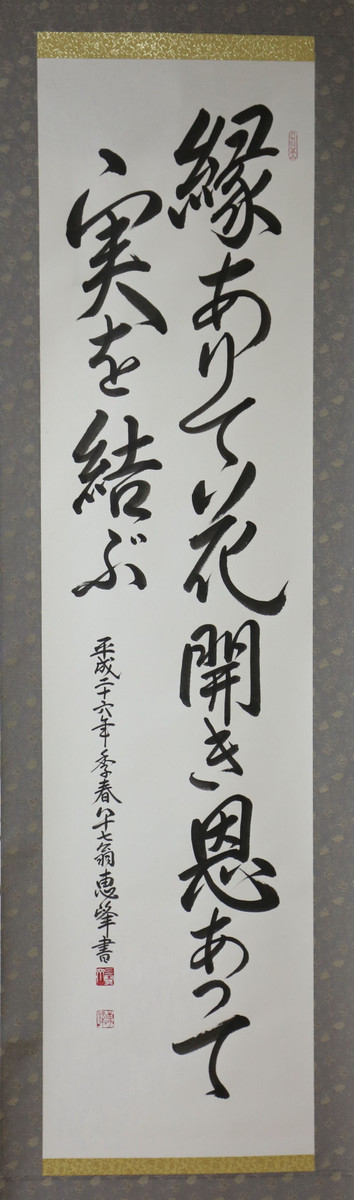 縁ありて花開き恩あって
実を結ぶ
平成二十六年季春八十七翁恵峰書